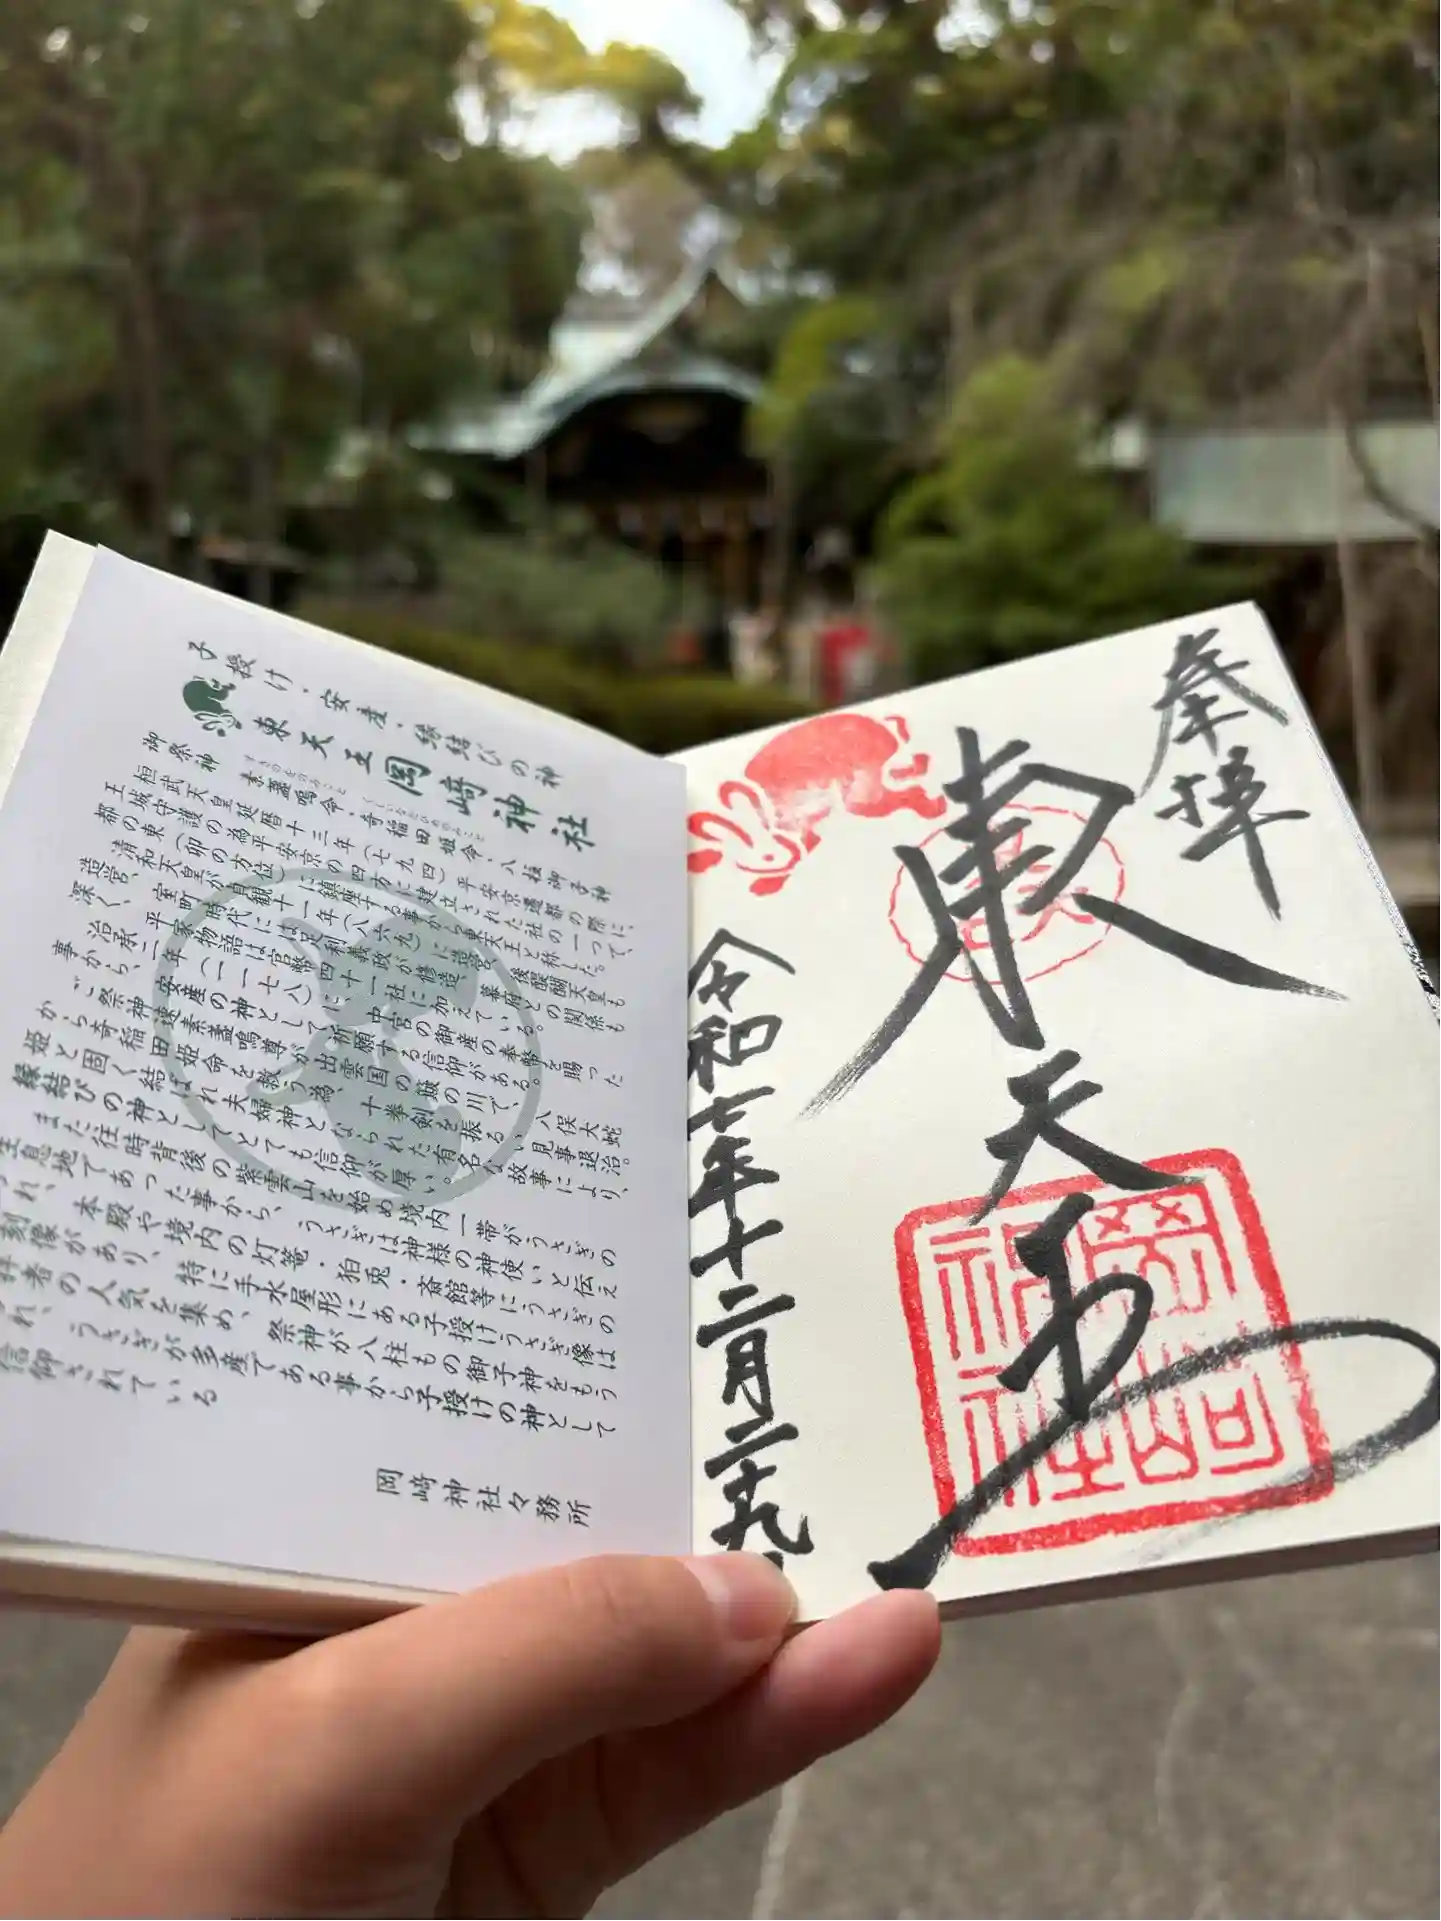 奉拝
東天王
岡﨑神社
令和七年十二月二十九
子授け・安産・縁結びの神
東天王 岡﨑神社
御祭神 素盞嗚命・奇稲田姫命・八柱御子神
すさのをのみこと くしいなだひめのみこと
桓武天皇延暦十三年(七九四)平安京遷都の際に、
王城守護の為平安京の四方に建立された社の一つで、
都の東(卯の方位)に鎮座する事から東天王と称した。
清和天皇が貞観十一年(八六九)に造営、後醍醐天皇も
造営、室町時代には足利義政が修造、幕府との関係も
深く、平家物語は官幣四十一社に加えている。
治承二年(一一七八)に、中宮の御産の奉幣を賜った
事から、安産の神として祈願する信仰がある。
ご祭神速素盞鳴尊が出雲国の簸の川で、八俣大蛇
から奇稲田姫命を救う為、十拳剣を振るい見事退治。
姫と固く結ばれ夫婦神となられた有名な故事により、
縁結びの神としてとても信仰が厚い。
また往時背後の紫雲山を始め境内一帯がうさぎの
生息地であった事から、うさぎは神様の神使いと伝え
られ、本殿や境内の灯篭・狛兎・斎館等にうさぎの
彫刻像があり、特に手水屋形にある子授けうさぎ像は
参拝者の人気を集め、祭神が八柱もの御子神をもう
けられ、うさぎが多産である事から子授けの神として
信仰されている
岡﨑神社々務所